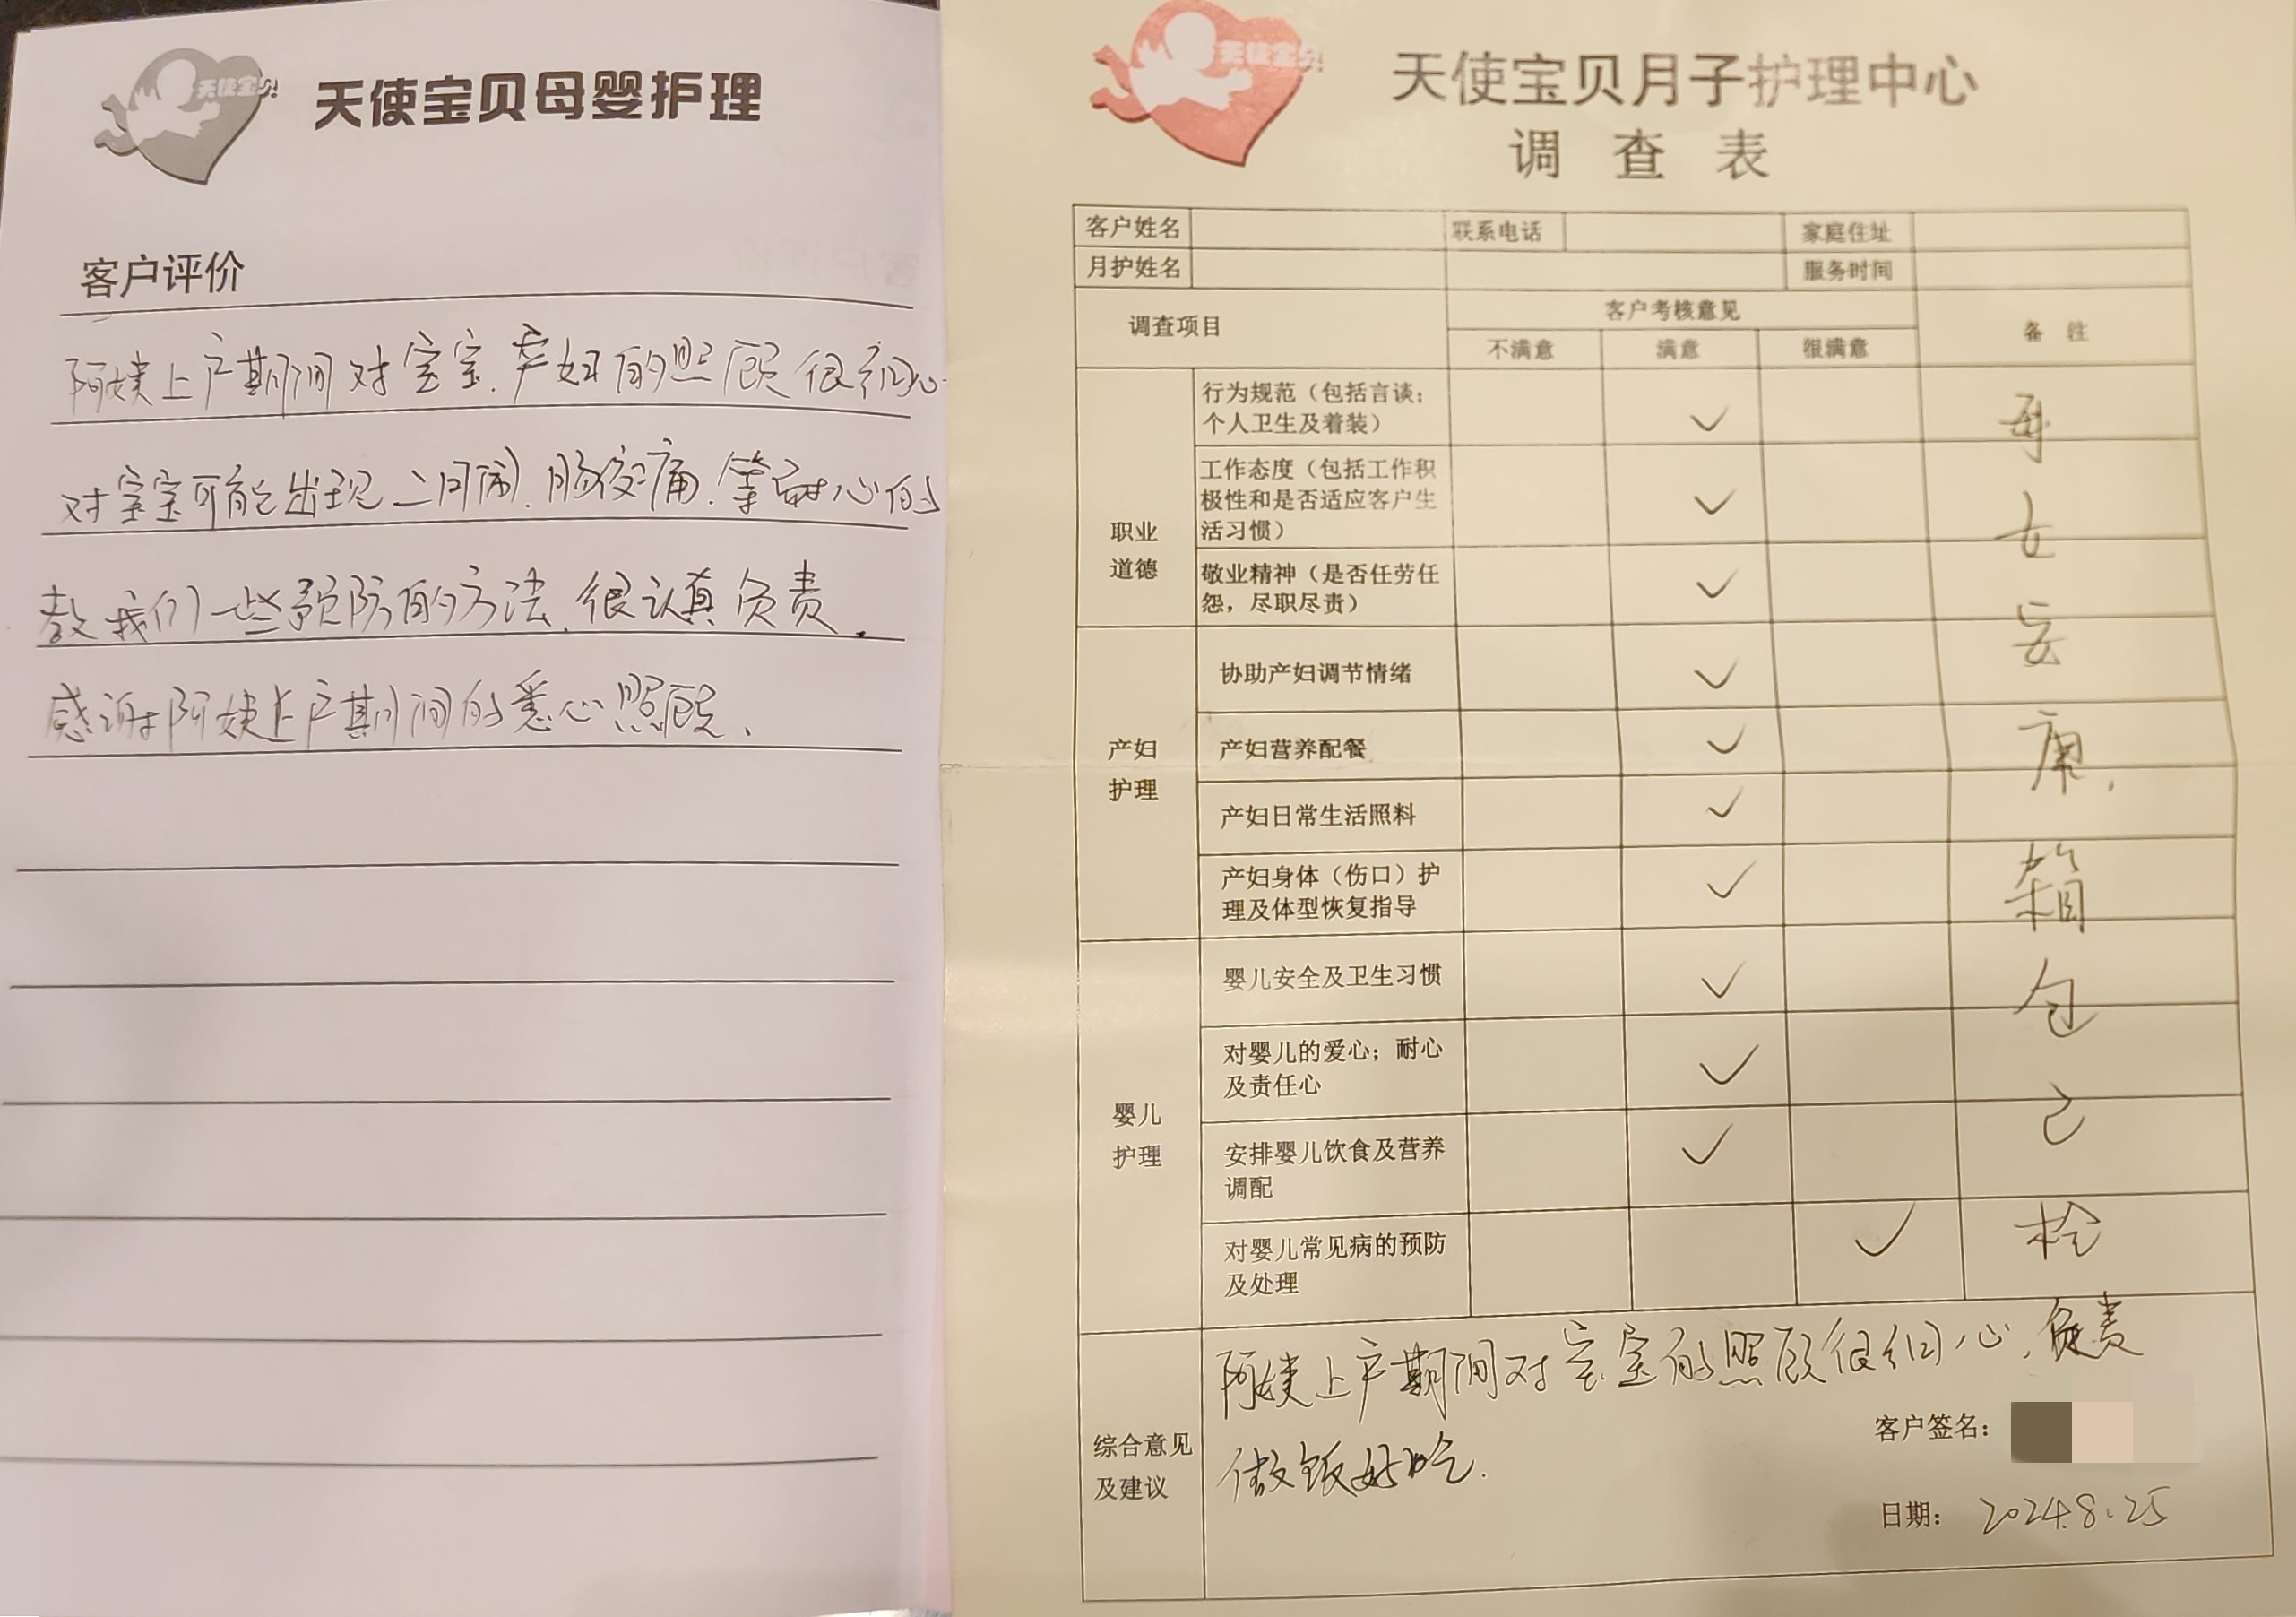 天使宝贝
天使宝贝母婴护理
客户评价
阿姨上户期间对宝宝、产妇的照顾很细心
对宝宝可能出现二月闹、肠绞痛、等耐心的
教我们一些预防的方法、很认真负责.
感谢阿姨上户期间的悉心照顾.
天使宝贝
天使宝贝月子护理中心
调查表
客户姓名 联系电话 家庭住址
月护姓名 服务时间
调查项目 客户考核意见 备注
不满意 满意 很满意
职业
道德
行为规范（包括言谈;
个人卫生及着装）
工作态度（包括工作积
极性和是否适应客户生
活习惯）
敬业精神（是否任劳任
怨，尽职尽责）
产妇
护理
协助产妇调节情绪
产妇营养配餐
产妇日常生活照料
产妇身体（伤口）护
理及体型恢复指导
婴儿
护理
婴儿安全及卫生习惯
对婴儿的爱心；耐心
及责任心
安排婴儿饮食及营养
调配
对婴儿常见病的预防
及处理
母
女
安
康,
箱
包
已
检
综合意见
及建议
阿姨上户期间对宝宝的照顾很细心、负责
做饭好吃.
客户签名：
日期： 2024.8.25